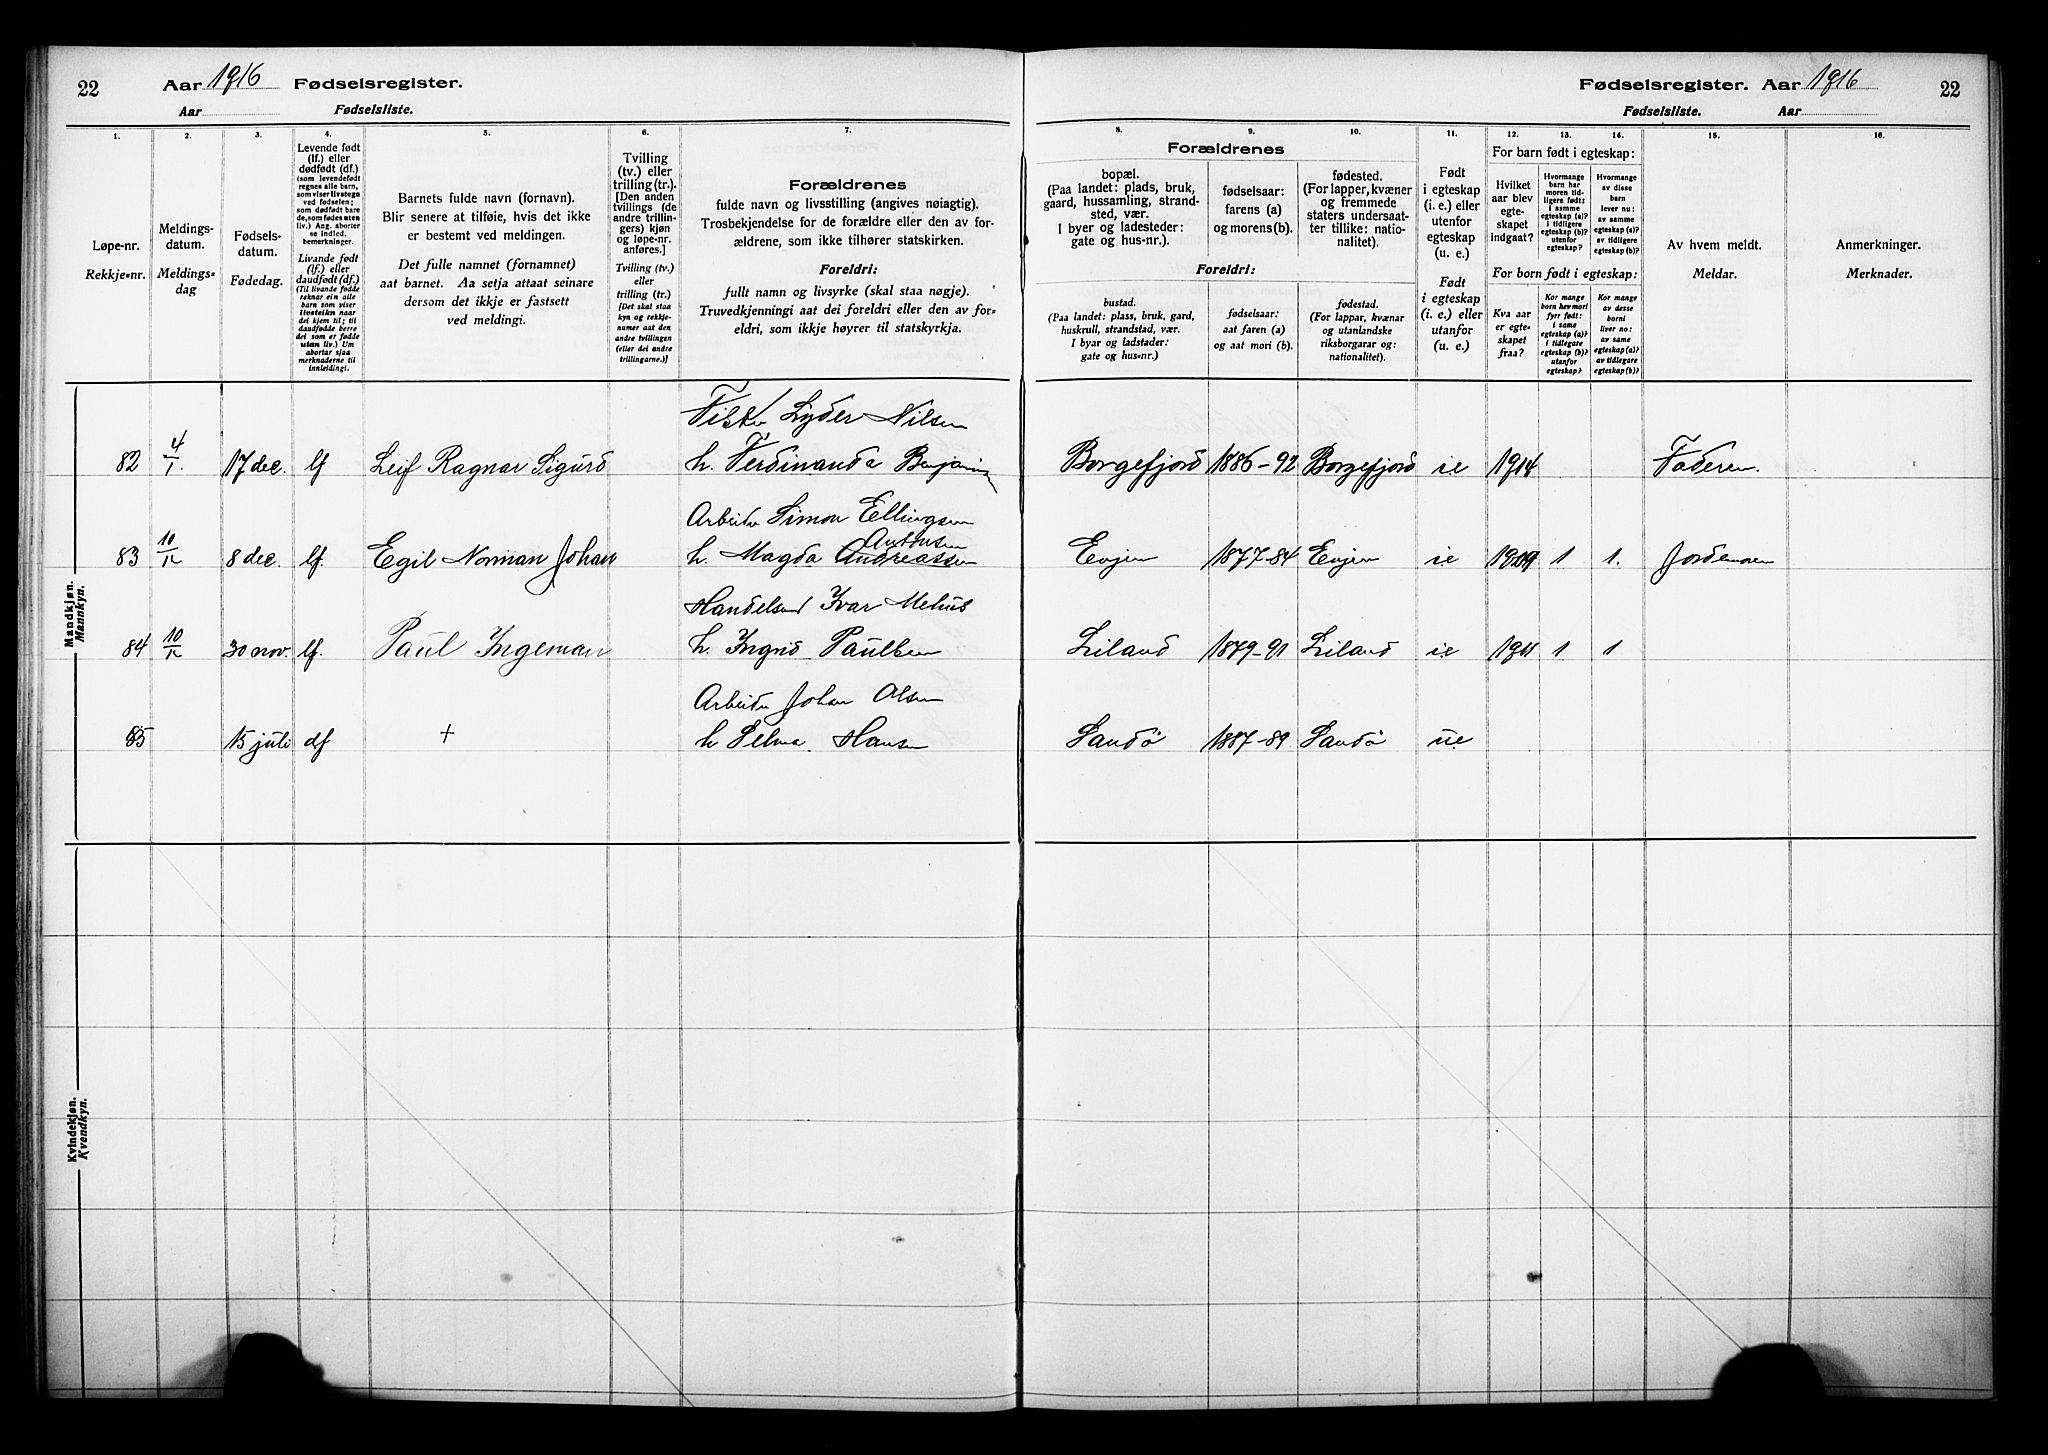 22 Aar 1916 Fødselsregister.
Aar Fødselsliste.
Fødselsregister. Aar 1916 22
Fødselsliste. Aar
1. 2. 3. 4. 5. 6. 7.
Løpe-nr.
Rekkje-nr.
Meldings-
datum.
Meldings-
dag
Fødsels-
datum.
Fødedag.
Levende født
(lf.) eller
dødfødt (df.)
(som levendefødt
regnes alle barn,
som viser livstegn
ved fødselen;
som dødfødt bare
de, som fødes uten
liv.) Ang. aborter
se indled.
bemerkninger.
Livande født
(lf.) eller
daudfødt (df.)
(Til livande fødde
reknar ein alle
barn som viser
livsteikn naar
dei kjem til; til
daudfødde berre
dei som er fødde
utan liv.) Um
abortar sjaa
merknaderne til
innleidingi.
Barnets fulde navn (fornavn).
Blir senere at tilføie, hvis det ikke
er bestemt ved meldingen.
Det fulle namnet (fornamnet)
aat barnet. Aa setja attaat seinare
dersom det ikkje er fastsett
ved meldingi.
Tvilling
(tv.) eller
trilling (tr.).
[Den anden
tvillings (de
andre trillin-
gers) kjøn
og løpe-nr.
anføres.]
Tvilling (tv.)
eller
trilling (tr.)
[Det skal staa
kyn og rekkje-
numer aat den
andre tvillingen
(eller dei andre
trillingarne.)]
Forældrenes
fulde navn og livsstilling (angives nøiagtig).
Trosbekjendelse for de forældre eller den av for-
ældrene, som ikke tilhører statskirken.
Foreldri:
fullt namn og livsyrke (skal staa nøgje).
Truvedkjenningi aat dei foreldri eller den av for-
eldri, som ikkje høyrer til statskyrkja.
8. 9. 10. 11. 12. 13. 14. 15. 16.
Forældrenes
bopæl.
(Paa landet: plads, bruk,
gaard, hussamling, strand-
sted, vær.
I byer og ladesteder:
gate og hus-nr.).
fødselsaar:
farens (a)
og morens (b).
fødested.
(For lapper, kvæner
og fremmede
staters undersaat-
ter tillike: natio-
nalitet).
Foreldri:
bustad.
(Paa landet: plass, bruk, gard,
huskrull, strandstad, vær.
I byar og ladstader:
gate og hus-nr.)
fødselsaar:
aat faren (a)
og aat mori (b).
fødestad.
(For lappar, kvænar
og utanlandske
riksborgarar og:
nationalitet).
Født
i egteskap
(i. e.) eller
utenfor
egteskap
(u. e.)
Født
i egteskap
(i. e.) eller
utanfor
egteskap
(u. e.)
For barn født i egteskap:
Hvilket
aar blev
egte-
skapet
indgaat?
Hvormange
barn har
moren tid-
ligere født:
i samme
egteskap (a)?
i tidligere
egteskap (b)?
utenfor
egteskap?
Hvormange
av disse
barn
lever nu:
av samme
egteskap (a)?
av tidligere
egteskap (b)?
For born født i egteskap:
Kva aar
er egte-
skapet
fraa?
Kor mange
born hev mori
fyrr født:
i same
egteskap (a)?
i tidlegare
egteskap (b)?
utanfor
egteskap?
Kor mange
av desse
borni
liver no:
av same
egteskap (a)?
av tidlegare
egteskap (b)?
Av hvem meldt.
Meldar.
Anmerkninger.
Merknader.
Mandkjøn.
Mannkyn.
Fisker Lyder Nilsen
82 4/1. 17 dec. lf Leif Ragnar Sigurd h. Ferdinanda Borgefjord 1886-92 Borgefjord ie 1914 Faderen
Arbeider Simon Ellingsen
Antonsen
83 10/12 8 dec. lf. Egil Norman Johan h. Magda Andreassen Evjen 1877-84 Evjen ie 1909 1 1. Jordemoren
Handelsmd Ivar Mehus
84 10/12 30 nov. lf. Paul Ingeman h. Ingrid Paulsen Liland 1879-91 Liland ie 1911 1 1
Arbeider Johan Olsen
85 15 juli df + h Selma Hansen Sandø 1887-89 Sandø ue
Kvindekjøn.
Kvendkyn.